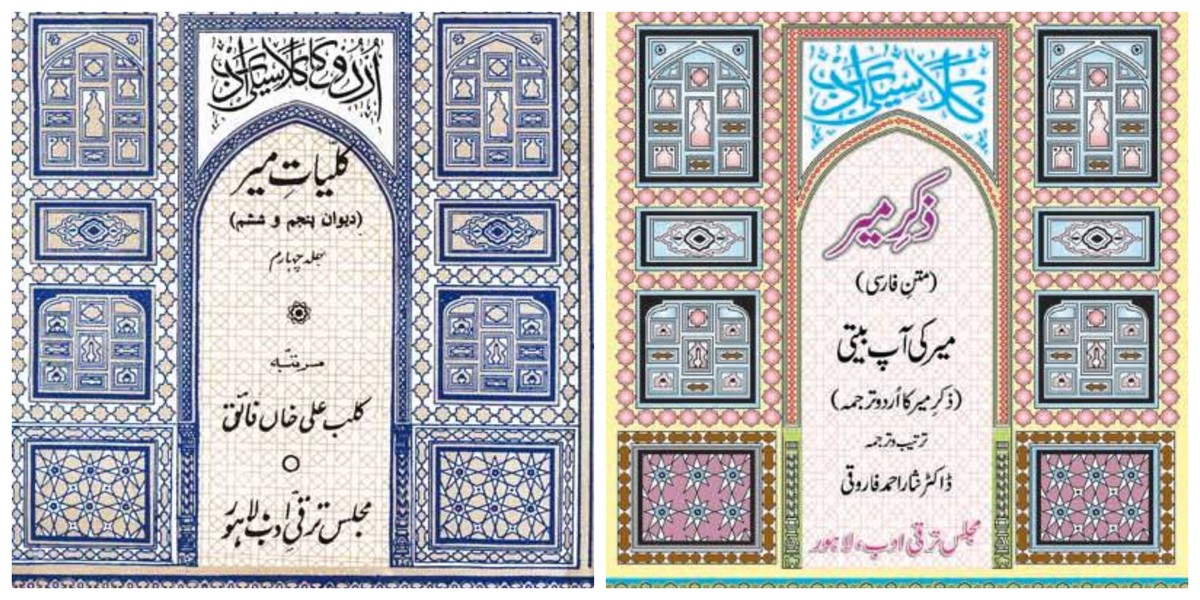 اُردُو کا کلاسیکی ادب
کلیّاتِ میر
(دیوان پنجم و ششم)
جلد چہارم
مرتبّہ
کلب علی خاں فائق
مجلس ترقیِ ادب لاہور
کلاسیکی ادب
ذکرِ میر
(متنِ فارسی)
میر کی آپ بیتی
(ذکرِ میر کا اُردو ترجمہ)
ترتیب و ترجمہ
ڈاکٹر نثار احمد فاروقی
مجلس ترقی ادب، لاہور